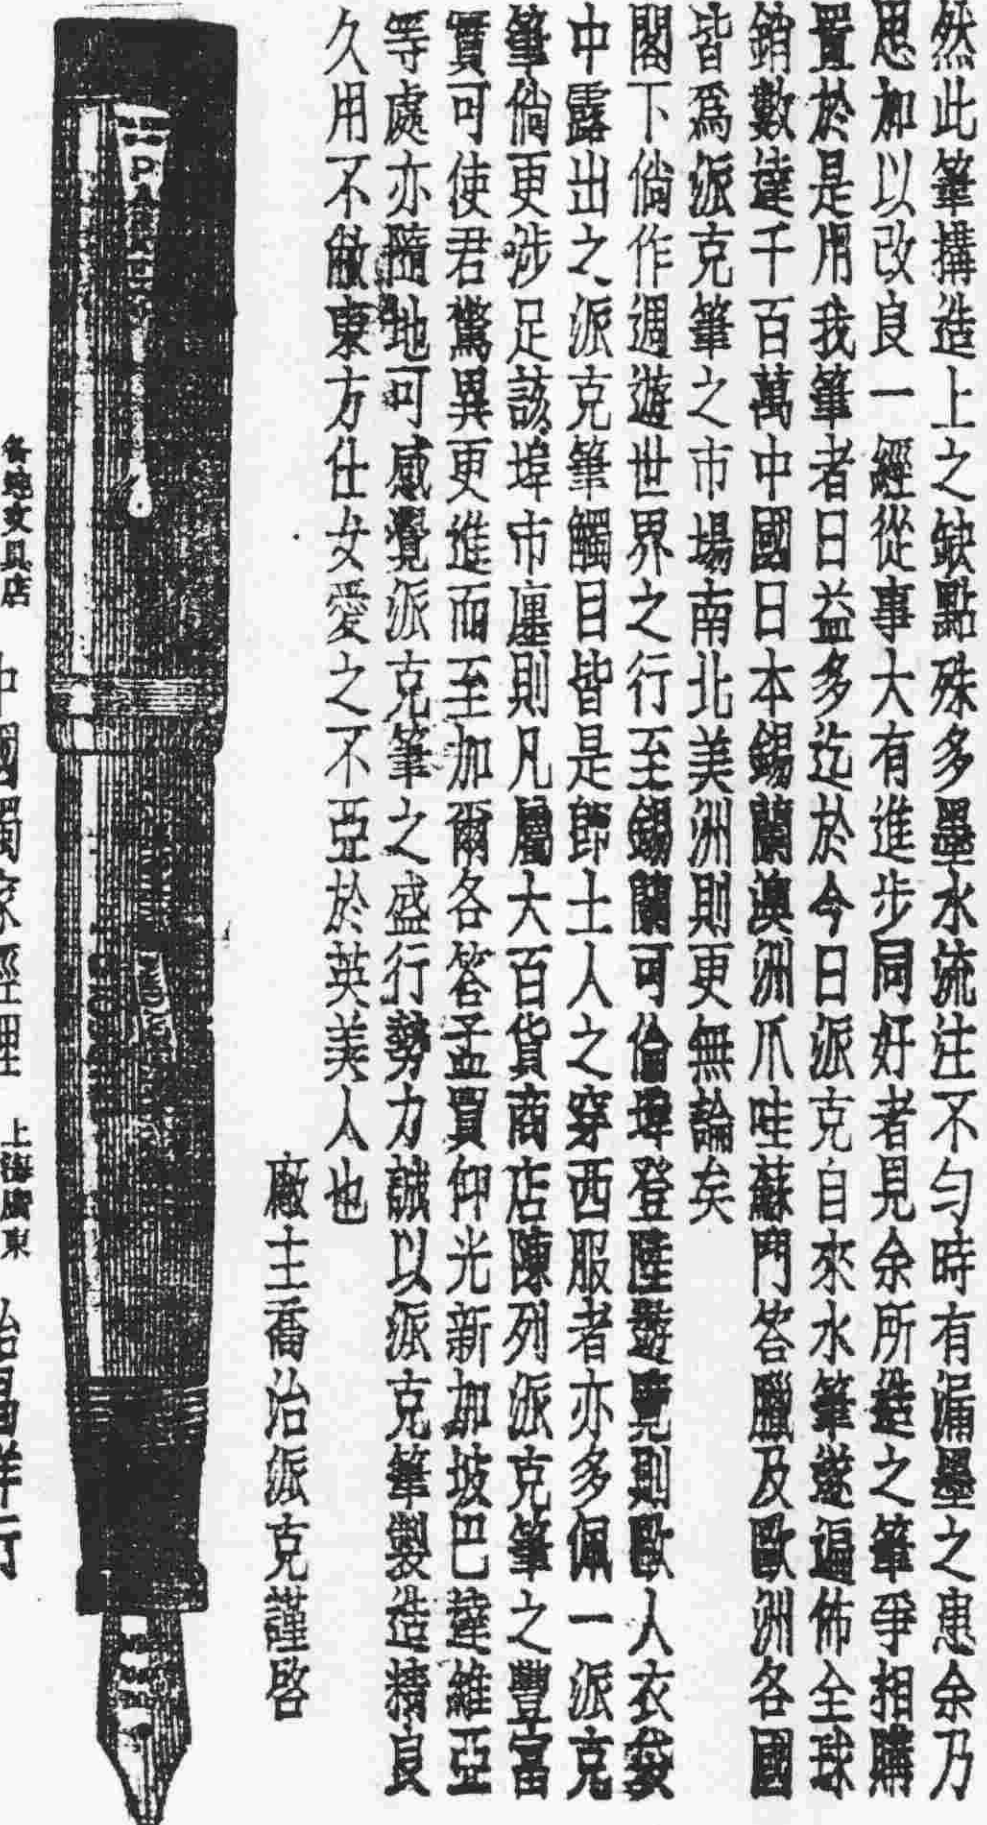 然此筆搆造上之缺點殊多墨水流注不勻時有漏墨之患余乃
思加以改良一經從事大有進步同好者見余所造之筆爭相購
置於是用我筆者日益多迄於今日派克自來水筆遂遍佈全球
銷數達千百萬中國日本錫蘭澳洲爪哇蘇門答臘及歐洲各國
皆爲派克筆之市場南北美洲則更無論矣
閣下倘作週遊世界之行至錫蘭可倫埠登陸遊覽則歐人衣袋
中露出之派克筆觸目皆是卽土人之穿西服者亦多佩一派克
筆倘更涉足該埠市廛則凡屬大百貨商店陳列派克筆之豐富
實可使君驚異更進而至加爾各答孟買仰光新加坡巴達維亞
等處亦隨地可感覺派克筆之盛行勢力誠以派克筆製造精良
久用不敝東方仕女愛之不亞於英美人也
廠主喬治派克謹啓
PARKER
各地文具店
中國獨家經理
上海廣東